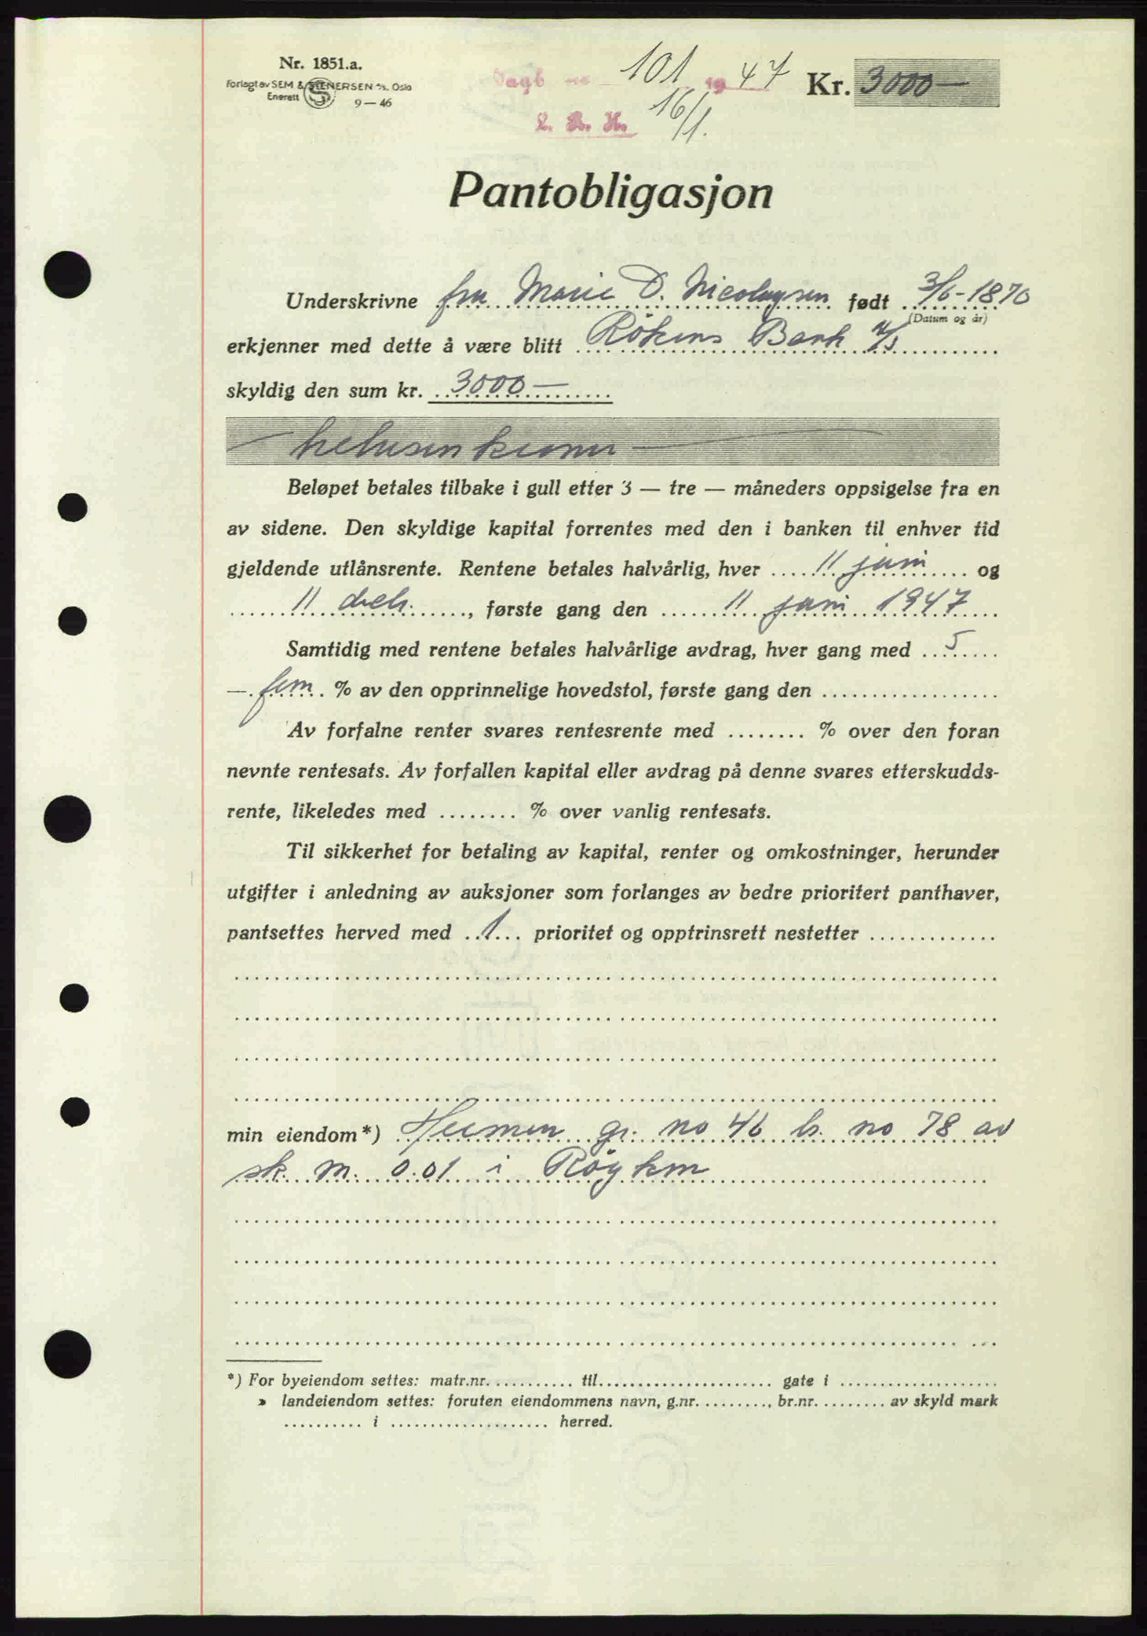 Nr. 1851.a.
Forlagt av SEM & STENERSEN A/S. Oslo
Enerett 9 — 46
Dagb no 101 1947 Kr. 3000—
L. B. H. 16/1.
Pantobligasjon
Underskrivne fru Marie D. Nicolaysen født 3/6-1870
(Datum og år)
erkjenner med dette å være blitt Røkens Bank A/S
skyldig den sum kr. 3000—
Beløpet betales tilbake i gull etter 3 — tre — måneders oppsigelse fra en
av sidene. Den skyldige kapital forrentes med den i banken til enhver tid
gjeldende utlånsrente. Rentene betales halvårlig, hver 11 juni og
11 des., første gang den 11 juni 1947
Samtidig med rentene betales halvårlige avdrag, hver gang med 5
— fem % av den opprinnelige hovedstol, første gang den
Av forfalne renter svares rentesrente med ........ % over den foran
nevnte rentesats. Av forfallen kapital eller avdrag på denne svares etterskudds-
rente, likeledes med ........ % over vanlig rentesats.
Til sikkerhet for betaling av kapital, renter og omkostninger, herunder
utgifter i anledning av auksjoner som forlanges av bedre prioritert panthaver,
pantsettes herved med 1 prioritet og opptrinsrett nestetter
min eiendom*) Heimen gr. no 46 b. no 78 av
sk. m. 0.01 i Røyken
*) For byeiendom settes: matr.nr. ........... til ...................... gate i ....................
» landeiendom settes: foruten eiendommens navn, g.nr. ........., br.nr. ......... av skyld mark
.......... i .................... herred.